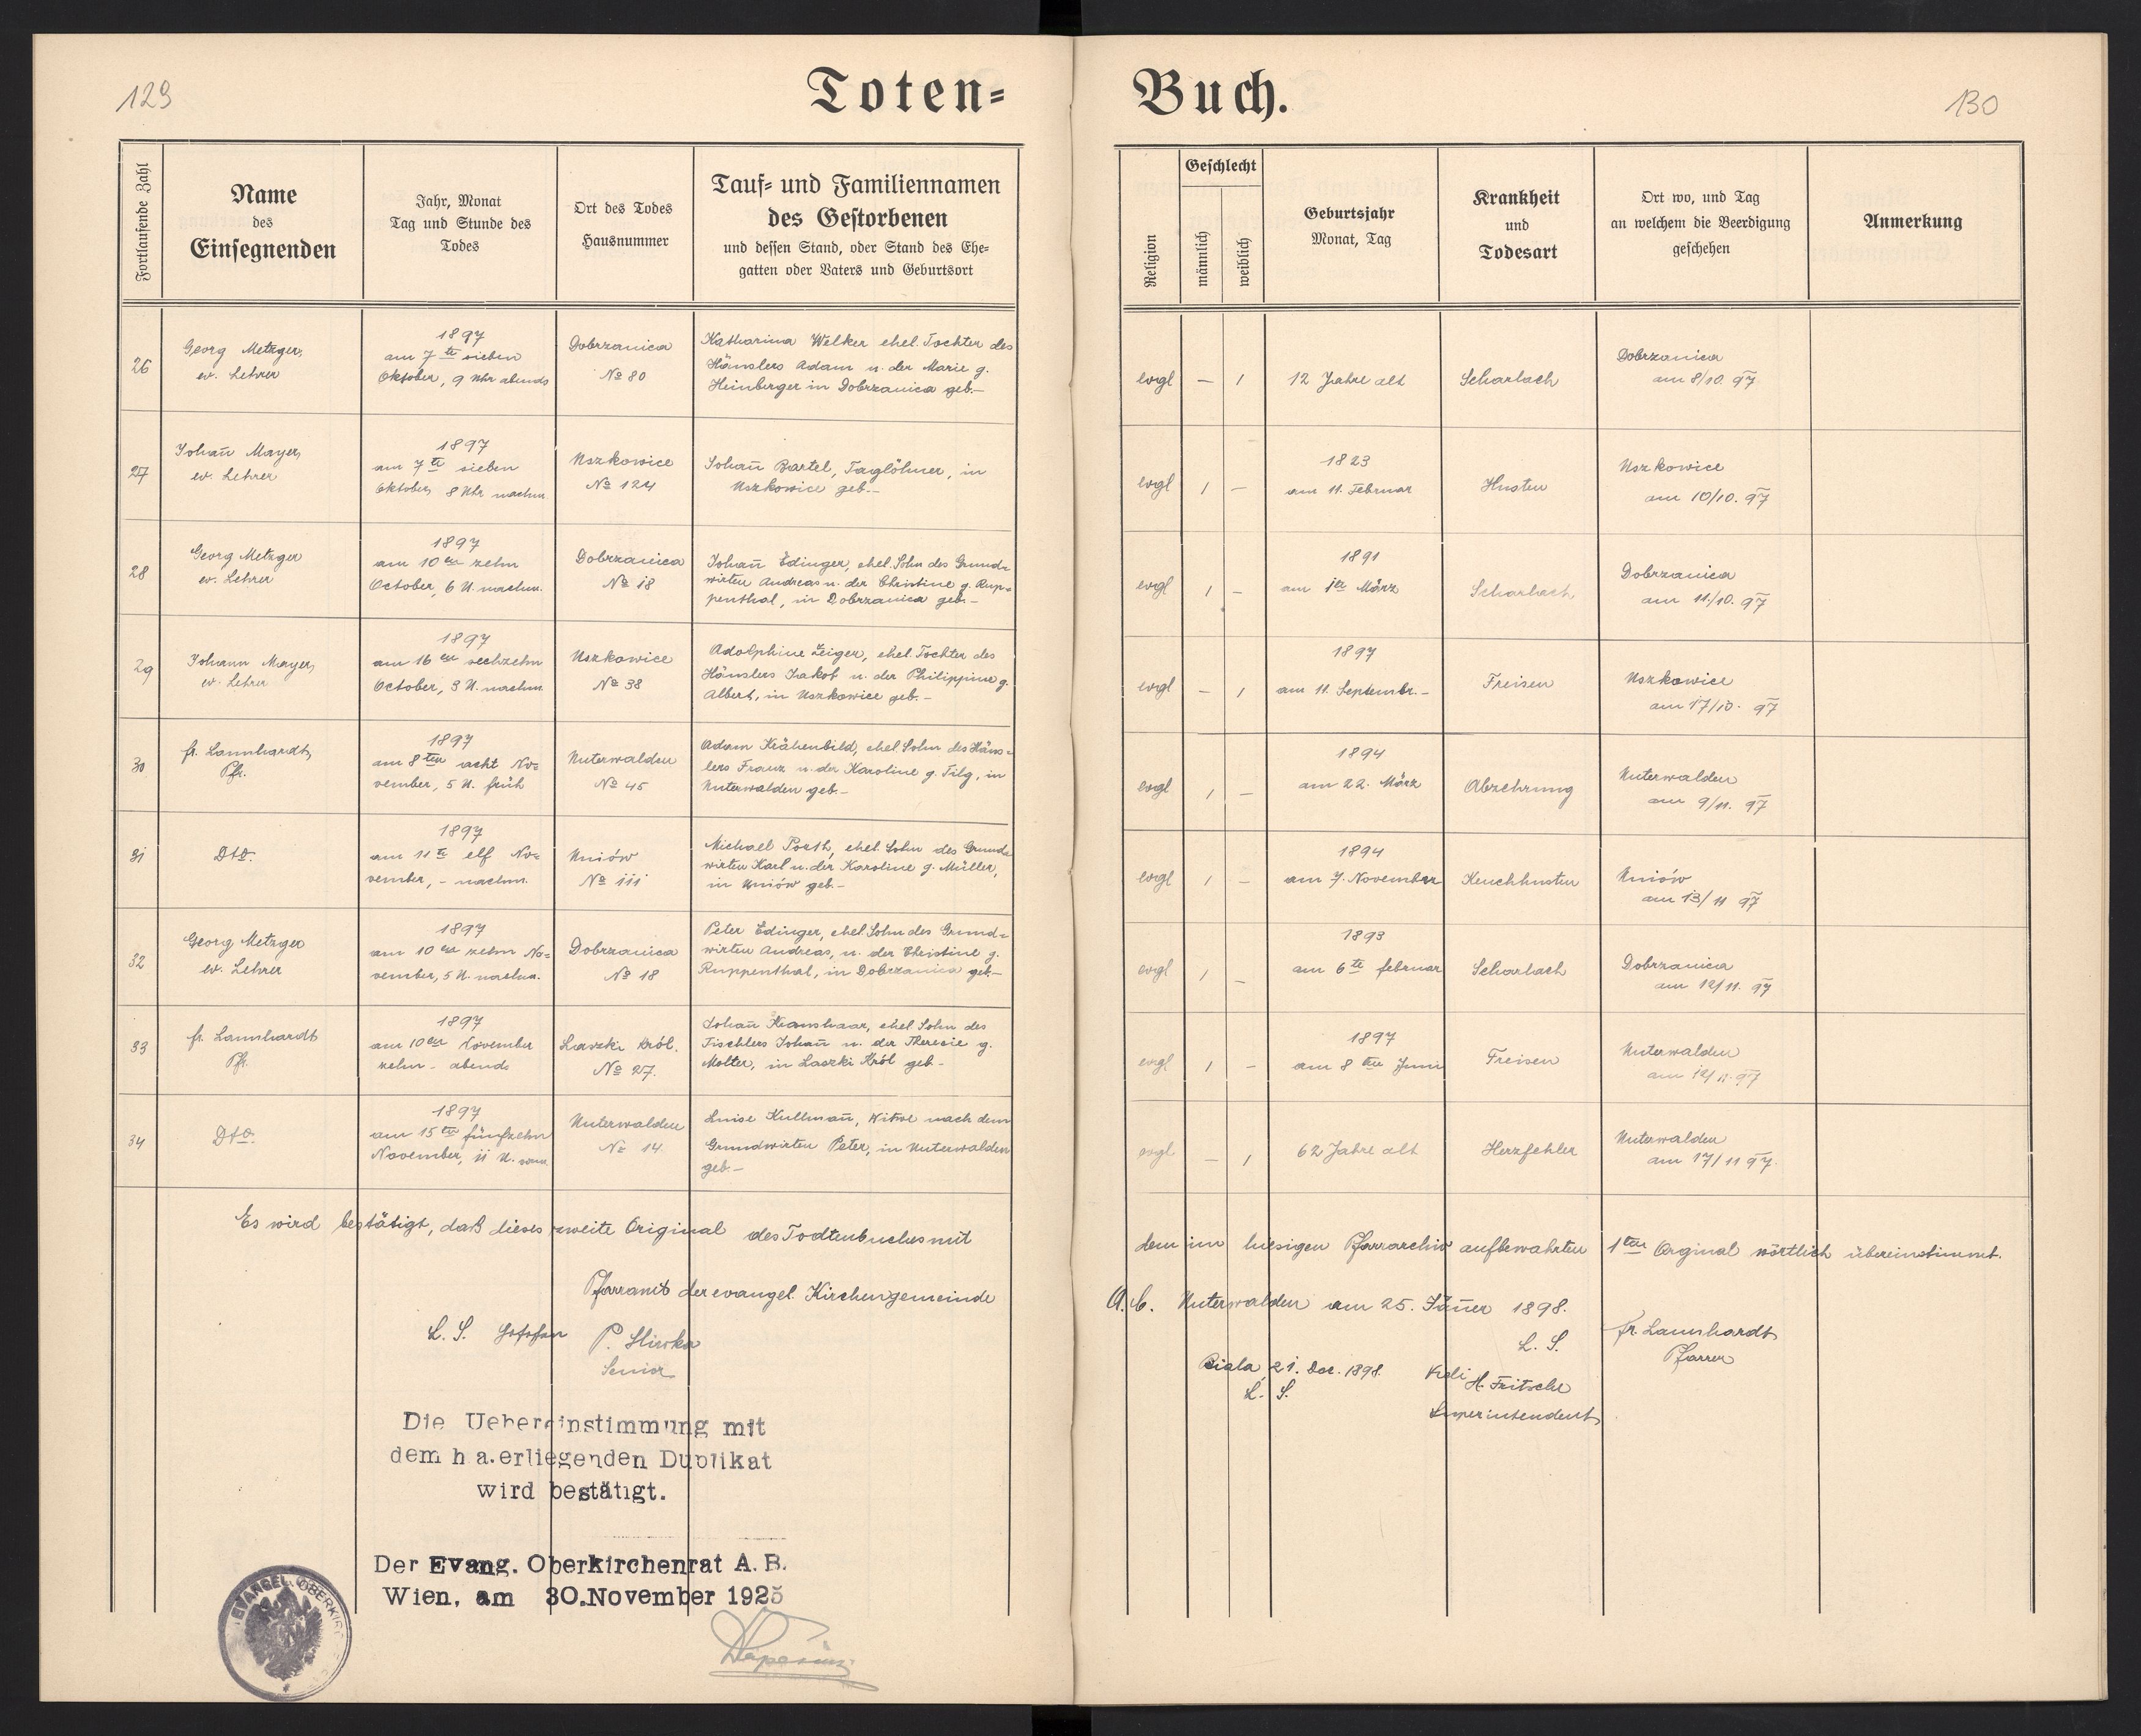 129
Toten=
Buch.
130
Fortlaufende Zahl
Name
des
Einsegnenden
Jahr, Monat
Tag und Stunde des
Todes
Ort des Todes
Hausnummer
Tauf= und Familiennamen
des Gestorbenen
und dessen Stand, oder Stand des Ehe=
gatten oder Vaters und Geburtsort
Religion
Geschlecht
männlich
weiblich
Geburtsjahr
Monat, Tag
Krankheit
und
Todesart
Ort wo, und Tag
an welchem die Beerdigung
geschehen
Anmerkung
26
Georg Metzger,
ev. Lehrer
1897
am 7te sieben
Oktober, 9 Uhr abends
Dobrzanica
№ 80
Katharina Welker ehel. Tochter des
Häuslers Adam u. der Marie g.
Heinberger in Dobrzanica geb.-
evgl
—
1
12 Jahre alt
Scharlach
Dobrzanica
am 8/10. 97
27
Johañ Mayer,
ev. Lehrer
1897
am 7te sieben
Oktober, 8 Uhr nachm.
Uszkowice
№ 124
Johañ Bartel, Taglöhner, in
Uszkowice geb.-
evgl
1
—
1823
am 11. Februar
Husten
Uszkowice
am 10/10. 97
28
Georg Metzger
ev. Lehrer
1897
am 10en zehn
October, 6 U. nachm.
Dobrzanica
№ 18
Johañ Edinger, ehel. Sohn des Grund=
wirten Andreas u. der Christine g. Rup=
penthal, in Dobrzanica geb.-
evgl
1
—
1891
am 1te März
Scharlach,
Dobrzanica
am 11./10. 97
29
Johann Mayer,
ev. Lehrer
1897
am 16en sechzehn
October, 3 U. nachm.
Uszkowice
№ 38
Adolphine Zeiger, ehel. Tochter des
Häuslers Jakob u. der Philippine g.
Albert, in Uszkowice geb.-
evgl
—
1
1897
am 11. Septembr.-
Freisen
Uszkowice
am 17/10. 97
30
fr. Launhardt,
Pfr.
1897
am 8ten acht No=
vember, 5 U. früh
Unterwalden
№ 45
Adam Krähenbild, ehel. Sohn des Häus=
lers Franz u. der Karoline g. Tilg, in
Unterwalden geb.-
evgl
1
—
1894
am 22. März
Abzehrung
Unterwalden
am 9/11. 97
31
Dto.
1897
am 11te elf No=
vember, - nachm.
Uniów
№ 111
Michael Porth, ehel. Sohn des Grund=
wirten Karl u. der Karoline g. Müller,
in Uniów geb.-
evgl
1
—
1894
am 7. November
Keuchhusten
Uniów
am 13/11 97
32
Georg Metzger
ev. Lehrer
1897
am 10en zehn No=
vember, 5 U. nachm.
Dobrzanica
№ 18
Peter Edinger, ehel. Sohn des Grund=
wirten Andreas, u. der Christine g.
Ruppenthal, in Dobrzanica geb.-
evgl
1
—
1893
am 6te februar
Scharlach
Dobrzanica
am 12/11. 97
33
fr. Launhardt
Pfr.
1897
am 10en November
zehn - abends
Laszki Król.
№ 27.
Johañ Kranshaar, ehel. Sohn des
Tischlers Johañ u. der Theresie g.
Molter, in Laszki Król geb.-
evgl
1
—
1897
am 8ten Juni
Freisen
Unterwalden
am 12/11. 97
34
Dto.
1897
am 15te fünfzehn
November, 11 U.
Unterwalden
№ 14
Luise Kullmañ, Witwe nach dem
Grundwirten Peter, in Unterwalden
geb.-
evgl
—
1
62 Jahre alt
Herzfehler
Unterwalden
am 17/11 97.
Es wird bestätigt, daß dieses zweite Original des Todtenbuches mit
dem im hiesigen Pfarrarchiv aufbewahrten 1ten Orginal wörtlich übereinstimmt.
Pfarramt der evangel. Kirchengemeinde
A. C. Unterwalden am 25. Jäner 1898.
L. S.
fr. Launhardt
Pfarrer
L. S.
P. Sliwka
Senior
Biala, 21. Dec. 1898.
L. S.
H. Fritsche
Superintendent
Die Uebereinstimmung mit
dem h a.erliegenden Duplikat
wird bestätigt.
Der Evang. Oberkirchenrat A. B.
Wien, am 30.November 1925